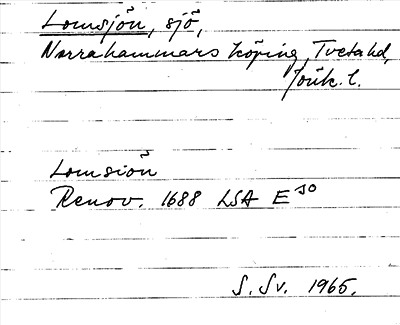 Lomsjön, sjö,
Norrahammars köping, Tveta hd,
Jönk. l.
Lomsiön
Renov. 1688 LSA E 30
S. Sv. 1965.